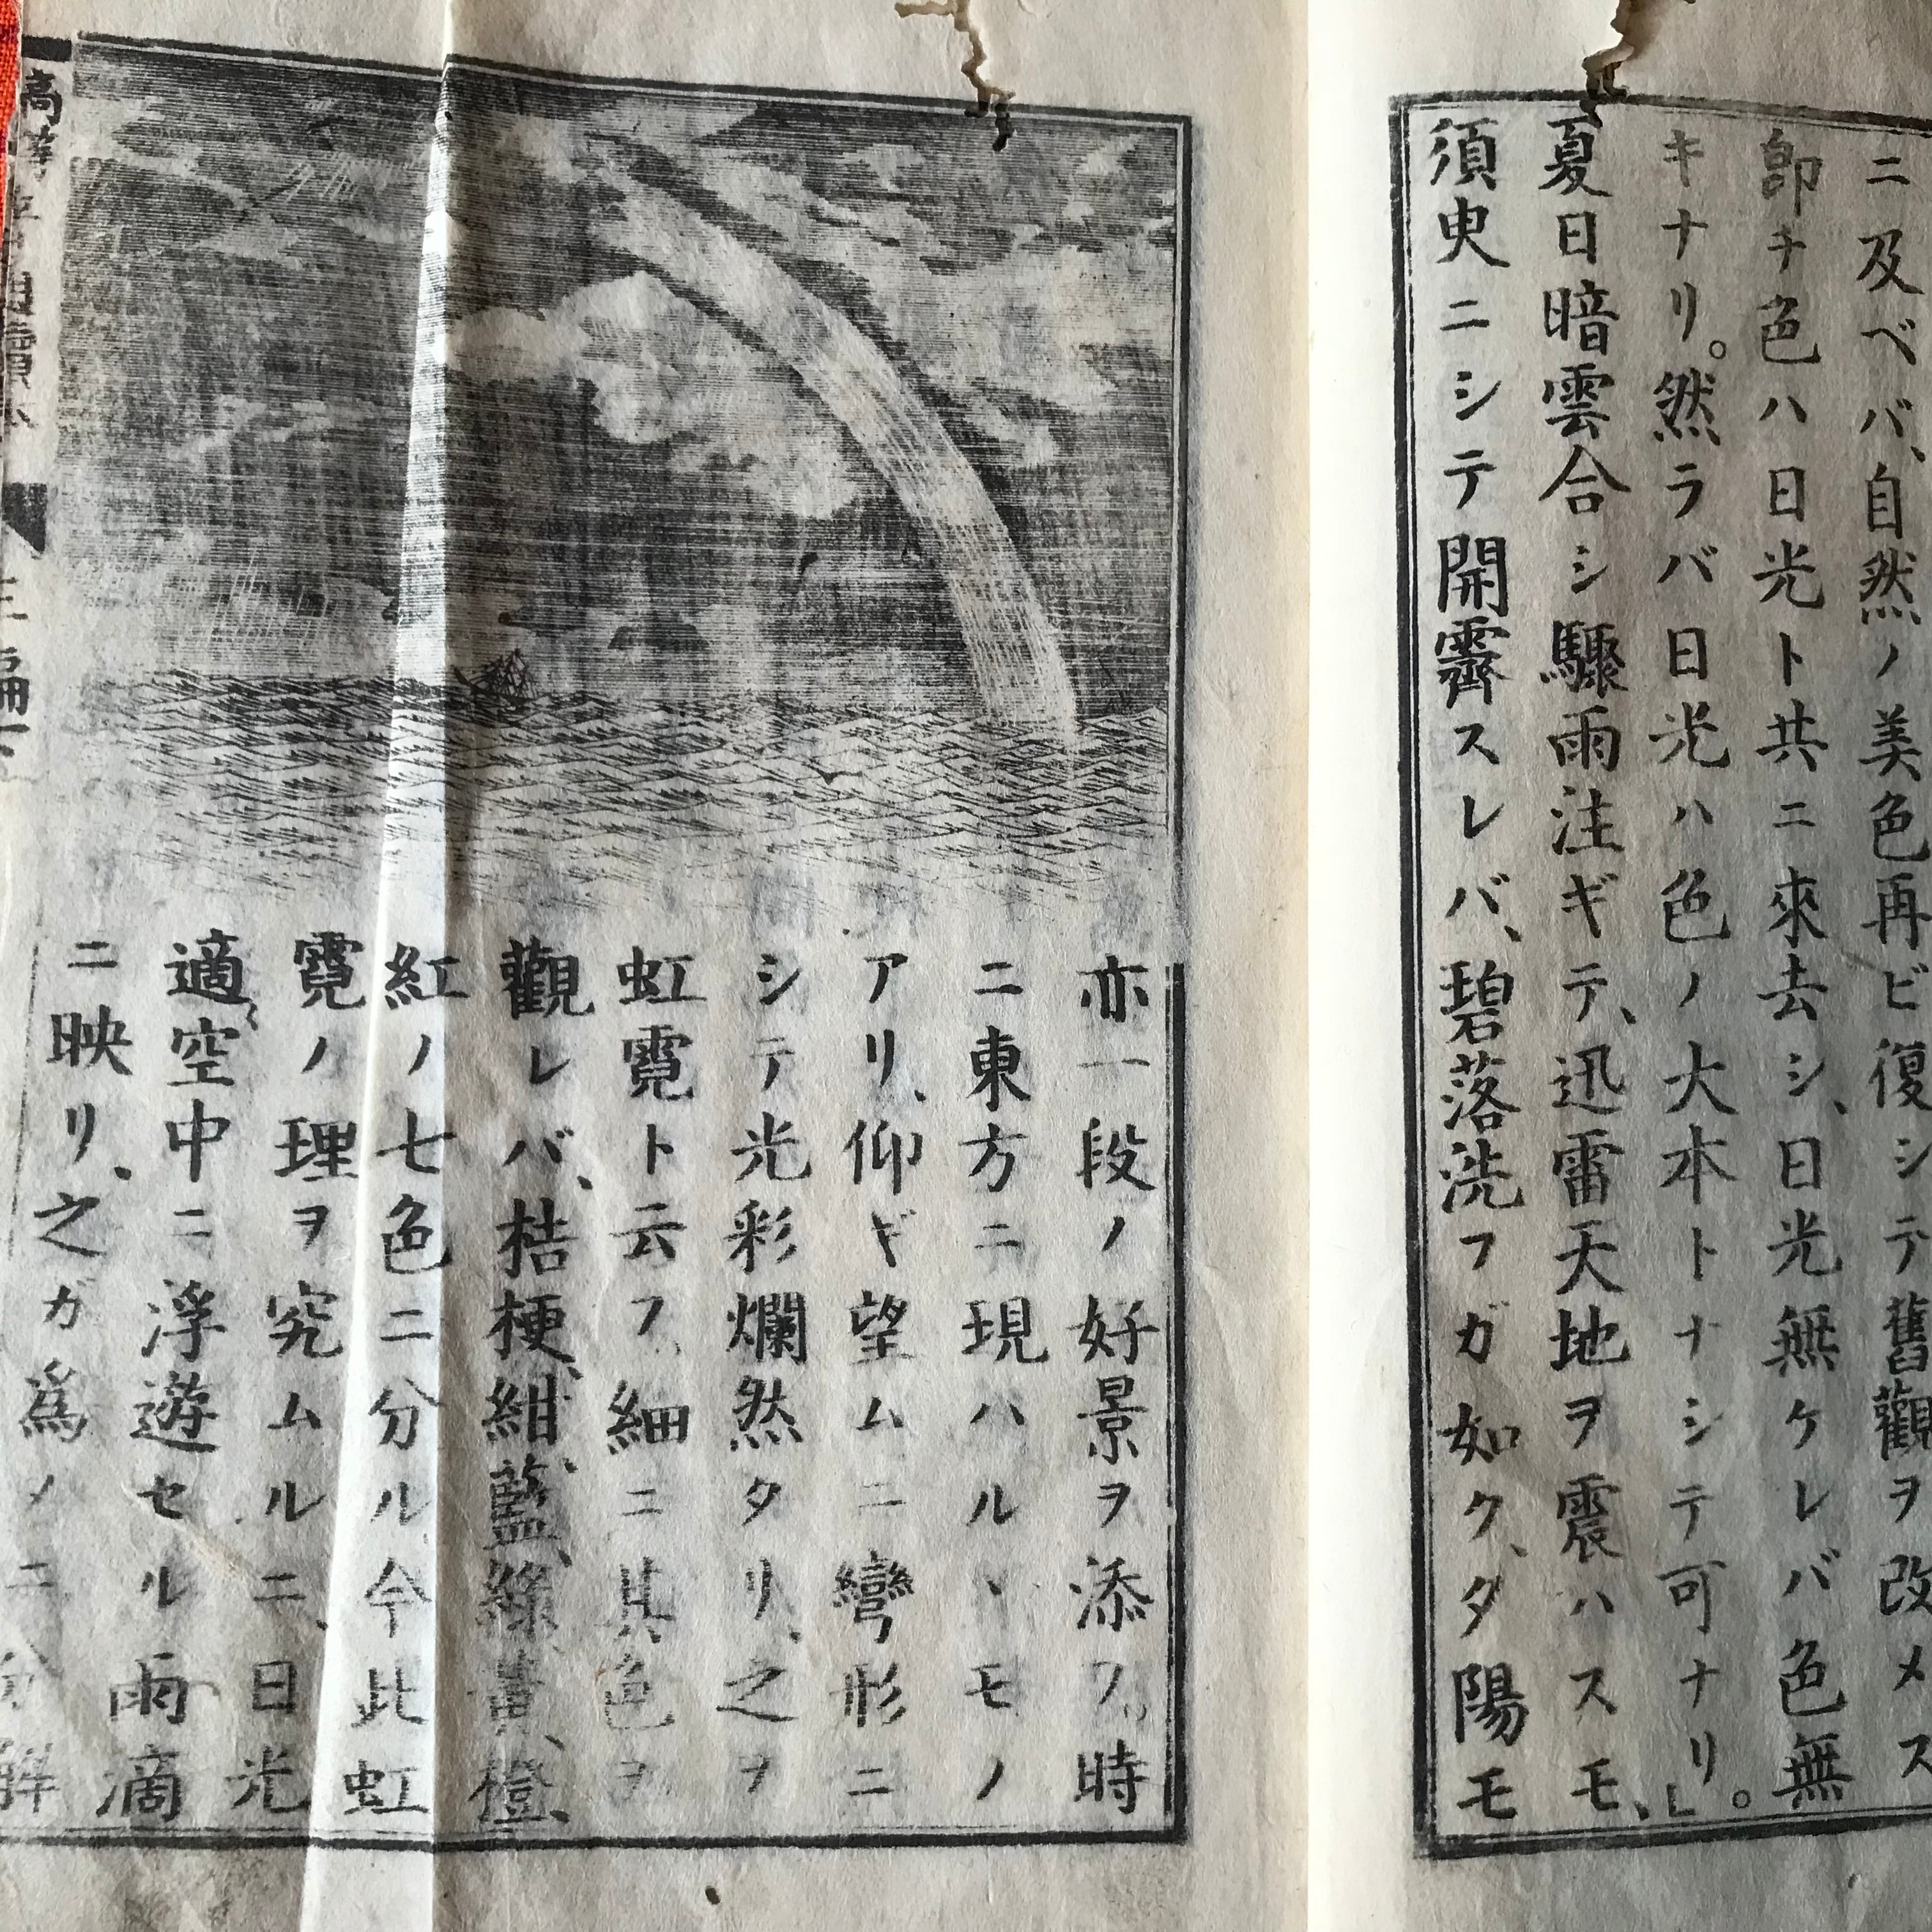 ニ及ベバ、自然ノ美色再ビ復シテ舊觀ヲ改メス
卽チ色ハ日光ト共ニ來去シ、日光無ケレバ色無
キナリ。然ラバ日光ハ色ノ大本トナシテ可ナリ。」
夏日暗雲合シ驟雨注ギテ、迅雷天地ヲ震ハスモ、
須臾ニシテ開霽スレバ、碧落洗フガ如ク、夕陽モ
亦一段ノ好景ヲ添フ。時
ニ東方ニ現ハルヽモノ
アリ、仰ギ望ムニ彎形ニ
シテ光彩爛然タリ、之ヲ
虹霓ト云フ、細ニ其色ヲ
觀レバ、桔梗、紺、藍、綠、黃、橙、
紅ノ七色ニ分ル、今此虹
霓ノ理ヲ究ムルニ、日光
適〻空中ニ浮遊セル雨滴
ニ映リ、之ガ爲メニ分解
高等
讀本
三編下